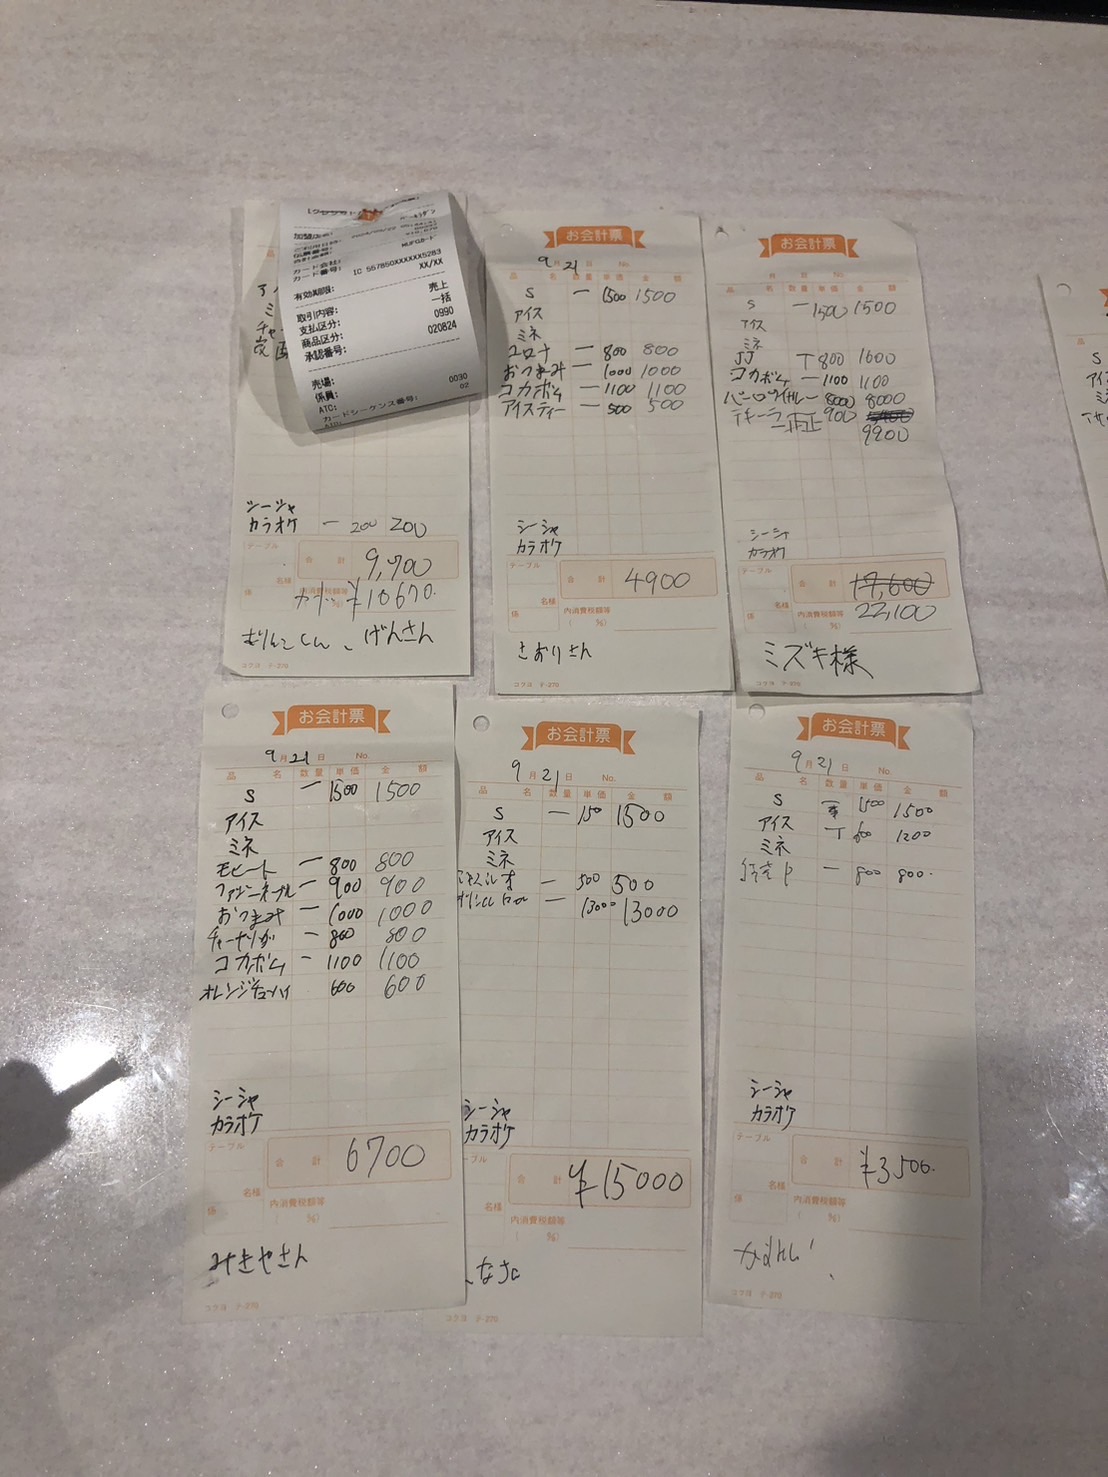 MUFGカード
カード会社:
カード番号: IC 557850XXXXXX5283
有効期限: XX/XX
取引内容: 売上
支払区分: 一括
商品区分: 0990
承認番号: 020824
売場:
係員: 0030
ATC: 02
カードシーケンス番号:
シーシャ
カラオケ 一 200 200
テーブル
合計 9,700
名様
係
内消費税額等
カード ¥10670.
げんさん
コクヨ テ-270
お会計票
9月21日 No.
品名 数量 単価 金額
S 一 1500 1500
アイス
ミネ
コロナ 一 800 800
おつまみ 一 1000 1000
コカボム 一 1100 1100
アイスティー 一 500 500
シーシャ
カラオケ
テーブル
合計 4900
名様
係
内消費税額等
( %)
さおりさん
コクヨ テ-270
お会計票
月 日 No.
品名 数量 単価 金額
S 一 1500 1500
アイス
ミネ
JJ T 800 1600
コカボム 一 1100 1100
一 8000 8000
テキーラ 900
9900
シーシャ
カラオケ
テーブル
合計 17,600
22,100
名様
係
内消費税額等
( %)
ミズキ様
コクヨ テ-270
S
アイ
ミ
お会計票
9月21日 No.
品名 数量 単価 金額
S 一 1500 1500
アイス
ミネ
モヒート 一 800 800
ファジーネーブル 一 900 900
おつまみ 一 1000 1000
一 800 800
コカボム 一 1100 1100
オレンジチューハイ 600 600
シーシャ
カラオケ
テーブル
合計 6700
名様
係
内消費税額等
( %)
みきやさん
コクヨ テ-270
お会計票
9月21日 No.
品名 数量 単価 金額
S 一 150 1500
アイス
ミネ
一 500 500
一 13000 13000
シーシャ
カラオケ
ーブル
合計 ¥15000
名様
内消費税額等
( %)
コクヨ テ-270
お会計票
9月21日 No.
品名 数量 単価 金額
S 1500 1500
アイス T 600 1200
ミネ
一 800 800.
シーシャ
カラオケ
テーブル
合計 ¥3,500.
名様
係
内消費税額等
( %)
コクヨ テ-270